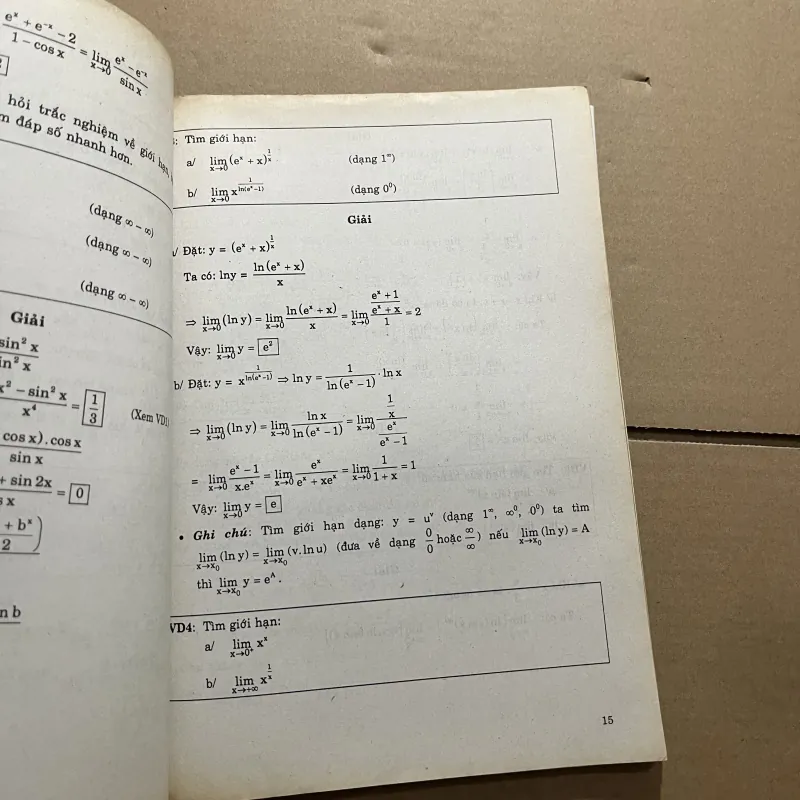 e^x + e^-x − 2 / 1 − cos x = lim x→0 e^x − e^-x / sin x
hỏi trắc nghiệm về giới hạn
đáp số nhanh hơn.
(dạng ∞ − ∞)
(dạng ∞ − ∞)
(dạng ∞ − ∞)
Giải
sin² x
x² − sin² x / x⁴ = 1/3 (Xem VD1
cos x). cos x / sin x
+ sin 2x / = 0
+ b^x / 2 )
n b
: Tìm giới hạn:
a/ lim x→0 (e^x + x)^(1/x) (dạng 1^∞)
b/ lim x→0 x^(1/ln(e^x −1)) (dạng 0⁰)
Giải
/ Đặt: y = (e^x + x)^(1/x)
Ta có: lny = ln(e^x + x) / x
⇒ lim x→0 (ln y) = lim x→0 ln(e^x + x) / x = lim x→0 ((e^x + 1)/(e^x + x)) / 1 = 2
Vậy: lim x→0 y = e²
b/ Đặt: y = x^(1/ln(e^x −1)) ⇒ ln y = 1 / ln(e^x − 1) . ln x
⇒ lim x→0 (ln y) = lim x→0 ln x / ln(e^x − 1) = lim x→0 (1/x) / (e^x/(e^x − 1))
= lim x→0 (e^x − 1) / x.e^x = lim x→0 e^x / (e^x + xe^x) = lim x→0 1 / (1 + x) = 1
Vậy: lim x→0 y = e
• Ghi chú: Tìm giới hạn dạng: y = u^v (dạng 1^∞, ∞⁰, 0⁰) ta tìm
lim x→x₀ (ln y) = lim x→x₀ (v.ln u) (đưa về dạng 0/0 hoặc ∞/∞) nếu lim x→x₀ (ln y) = A
thì lim x→x₀ y = e^A.
VD4: Tìm giới hạn:
a/ lim x→0⁺ x^x
b/ lim x→+∞ x^(1/x)
15